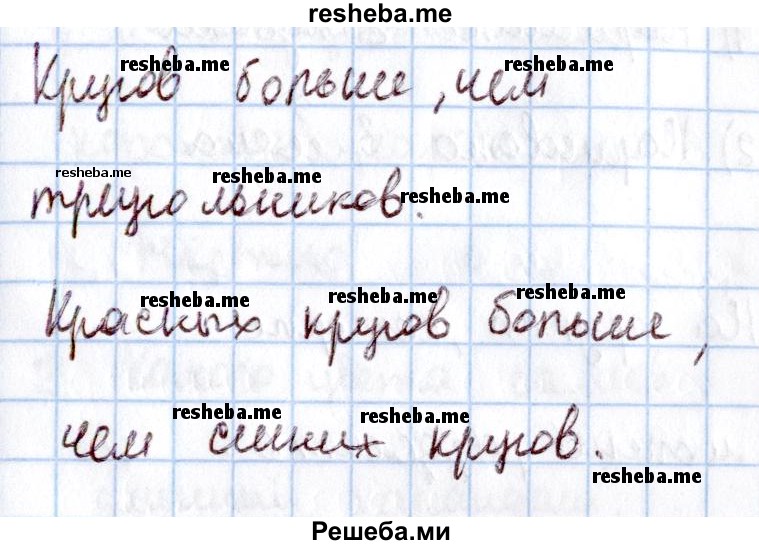 resheba.me
Кругов больше, чем
resheba.me resheba.me
треугольников.
resheba.me resheba.me resheba.me
Красных кругов больше,
resheba.me resheba.me resheba.me
чем синих кругов.
resheba.me resheba.me
resheba.me
Решеба.ми